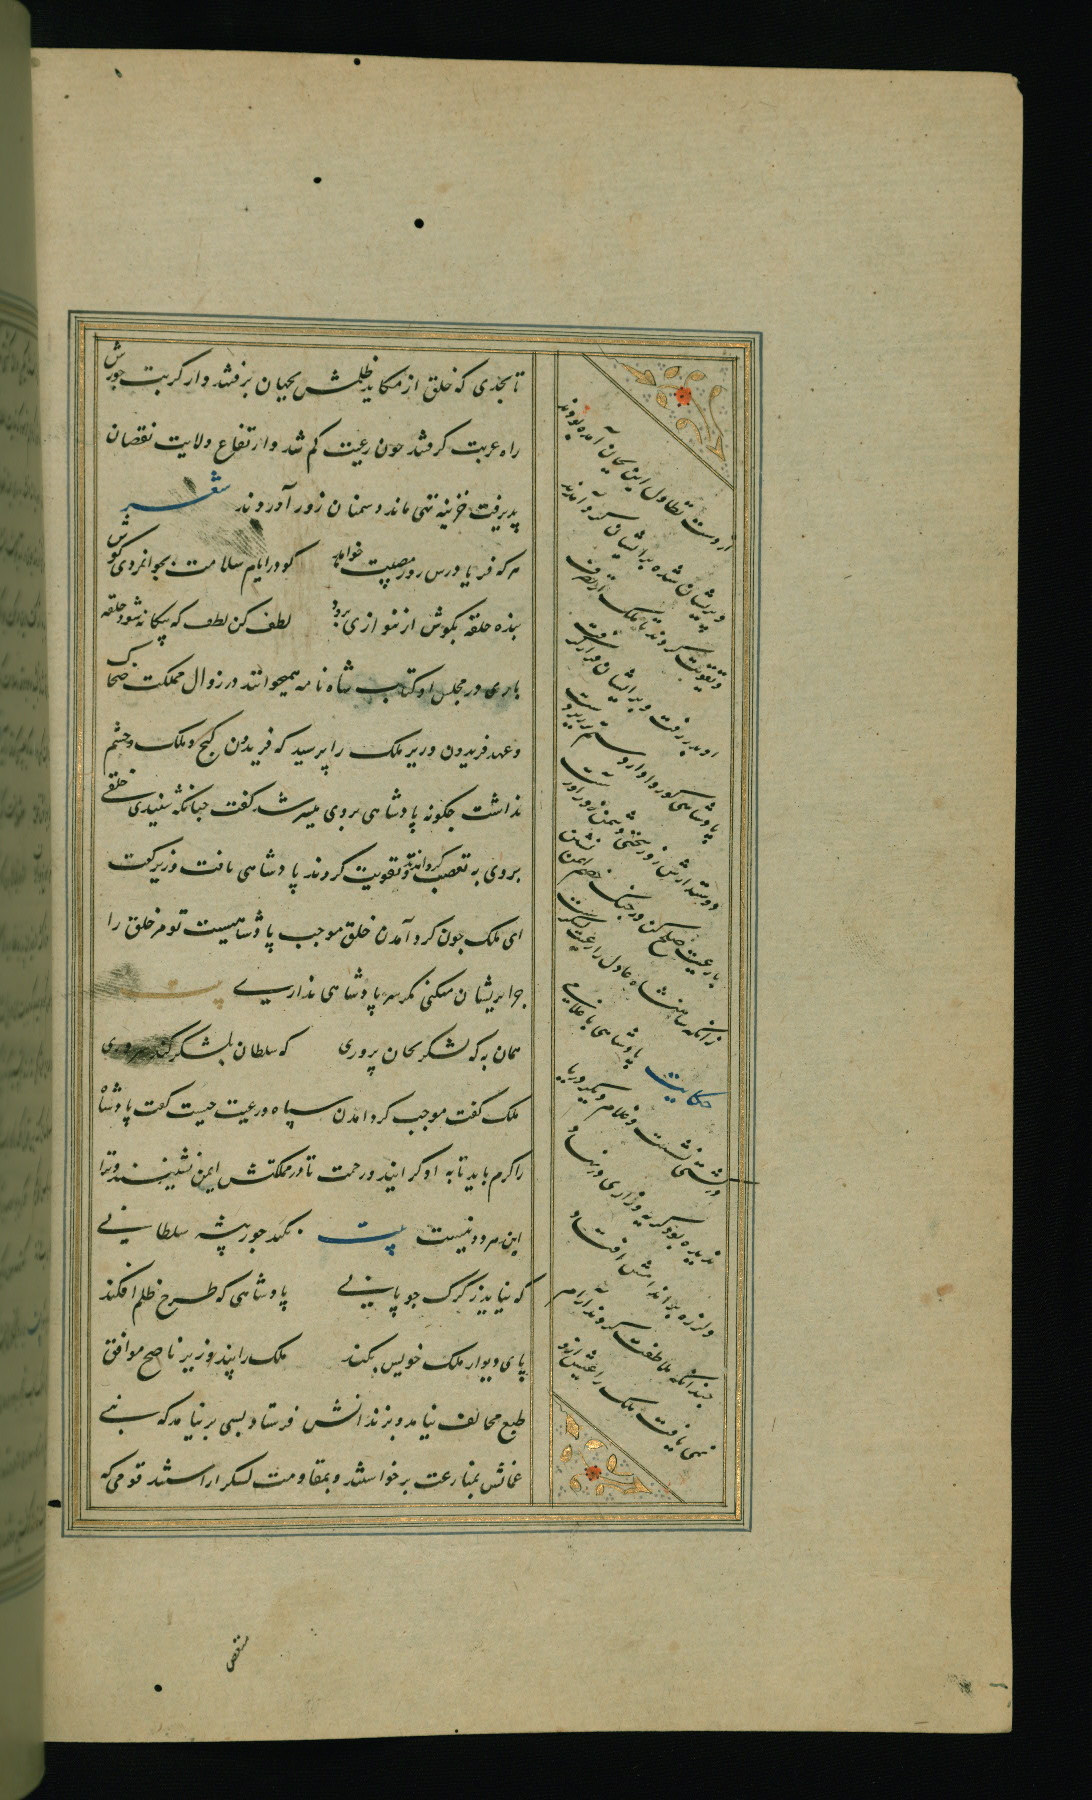 تا بجدی که خلق از مکاید ظلمش بجهان برفتند و از کربت جورش
راه غربت گرفتند چون رعیت کم شد و ارتفاع ولایت نقصان
پذیرفت خزینه تهی ماند دشمنان زور آوردند شعر
هر که فریادرس روز مصیبت خواهد کو در ایام سلامت بجوانمردی کوش
بنده حلقه بگوش ار ننوازی برود لطف کن لطف که بیگانه شود حلقه
باری در مجلس او کتاب شاه نامه همیخواندند در زوال مملکت ضحاک
و عهد فریدون وزیر ملک را پرسید که فریدون گنج و ملک و حشم
نداشت چگونه پادشاهی بروی میسر شد گفت چنانکه شنیدی خلقی
بروی به تعصب گرد آمدند و تقویت کردند پادشاهی یافت وزیر گفت
ای ملک چون گرد آمدن خلق موجب پادشاهیست تو مر خلق را
چرا پریشان میکنی مگر سر پادشاهی نداری بیت
همان به که لشکر بجان پروری که سلطان بلشکر کند سروری
ملک گفت موجب گرد آمدن سپاه و رعیت چیست گفت پادشاه
را کرم باید تا به او گرایند و رحمت تا در مملکتش ایمن نشینند و ترا
این هر دو نیست بیت نکند جور پیشه سلطانی
که نیاید ز گرگ چوپانی پادشاهی که طرح ظلم افکند
پای دیوار ملک خویش بکند ملک را پند وزیر ناصح موافق
طبع مخالف نیامد و بزندانش فرستاد بسی برنیامد که بنی
عمانش بمنازعت برخواستند و بمقاومت لشکر آراستند قومی که
از دست تطاول این بجان آمده بودند
و پریشان شده بر ایشان گرد آمدند
و تقویت کردند تا ملک از تصرف
او بدر رفت و بر ایشان قرار گرفت
پادشاهی کو روا دارد ستم بر زیردست
دوستدارش روز سختی دشمن زورآورست
با رعیت صلح کن وز جنگ خصم ایمن نشین
زانکه شاهنشاه عادل را رعیت لشکرست
حکایت پادشاهی با غلامی
در کشتی نشست و غلام دیگر دریا
ندیده بود گریه و زاری در نهاد
و لرزه بر اندامش افتاد
چندانکه ملاطفت کردند آرام
نمی یافت ملک را عیش ازو
منغص